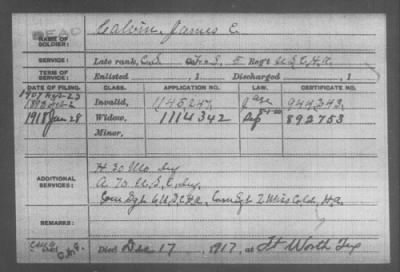 DEAD
NAME OF SOLDIER: Calvin, James C.
SERVICE: Late rank, F & S, 5 Reg't U.S.C.H.A.
TERM OF SERVICE: Enlisted , 1 Discharged , 1
DATE OF FILING. CLASS. APPLICATION NO. LAW. CERTIFICATE NO.
Invalid, 1145247 944,343
1918 Jan 28 Widow, 1114342 892753
Minor,
ADDITIONAL SERVICES:
H 30 Mo Inf
A 73 U.S.C. Inf
Com Sgt 6 U.S.C.H.A. Com Sgt 2 Miss Cold. H.A.
REMARKS:
Died Dec 17, 1917, at Ft Worth Tex